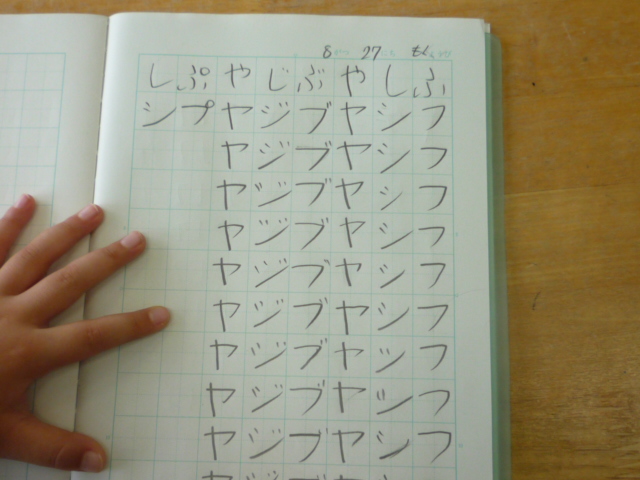 8 27 もく
ふフフフフフフフフフ
しシシシシシシシシシ
やヤヤヤヤヤヤヤヤヤ
ぶブブブブブブブブブ
じジジジジジジジジジ
やヤヤヤヤヤヤヤヤヤ
ぷプ
しシ